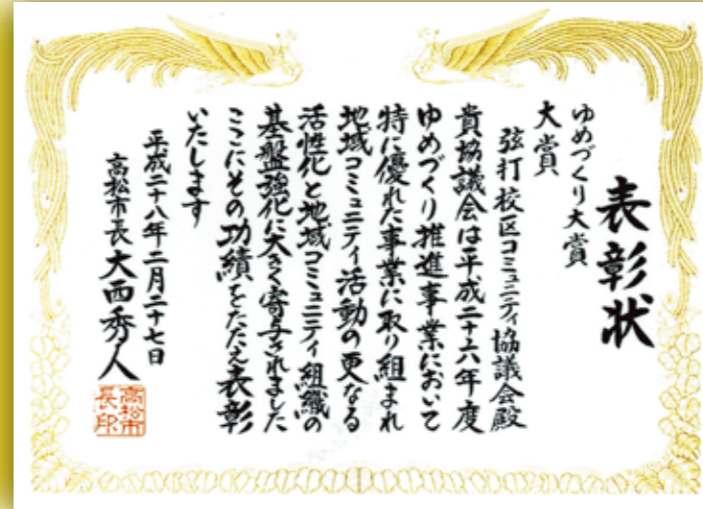 表彰状
ゆめづくり大賞
大賞
弦打校区コミュニティ協議会殿
貴協議会は平成二十六年度
ゆめづくり推進事業において
特に優れた事業に取り組まれ
地域コミュニティ活動の更なる
活性化と地域コミュニティ組織の
基盤強化に大きく寄与されました
ここにその功績をたたえ表彰
いたします
平成二十八年二月二十七日
高松市長 大西秀人
高松市長之印